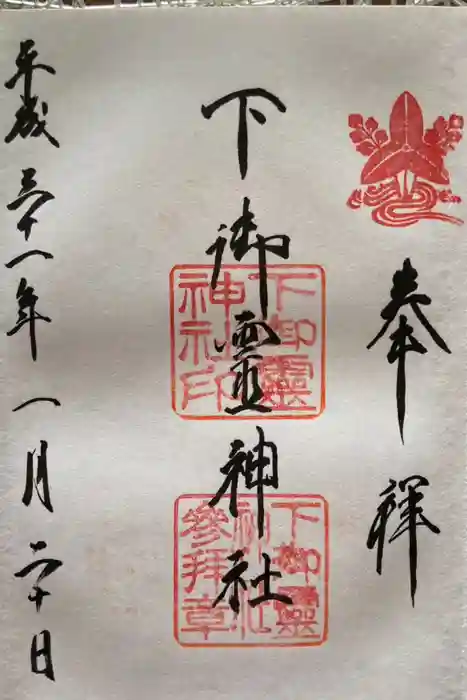 奉拝
下御霊神社
下御靈
神社印
下御靈
神社
參拝章
平成三十一年一月二十日